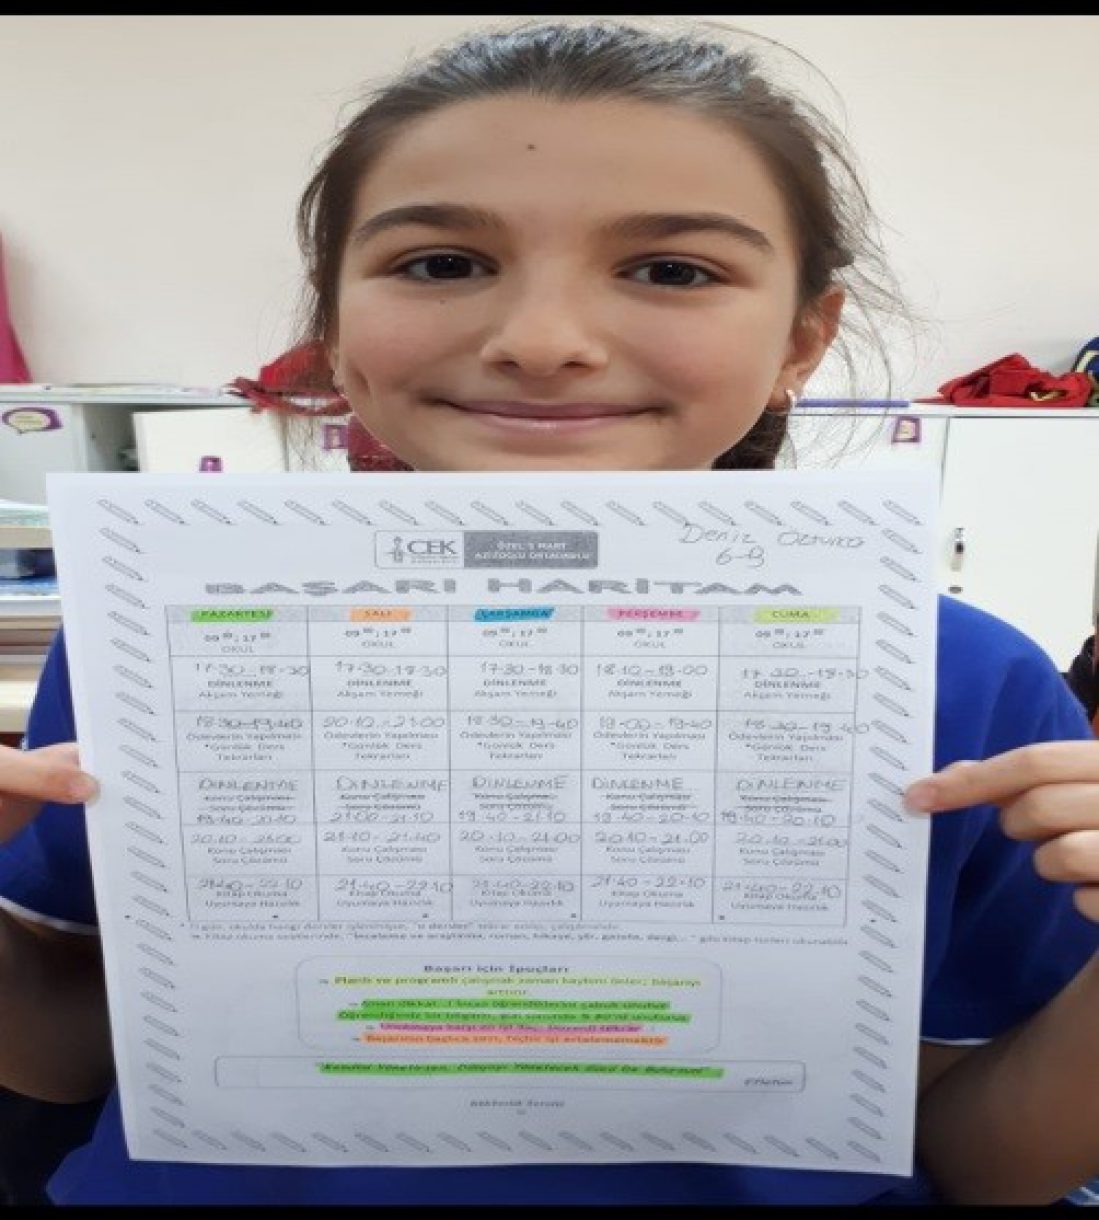 Deniz Öztürk
6-9
ÇEK
ÖZEL 5 MART
AZİZOĞLU ORTAOKULU
BAŞARI HARİTAM
PAZARTESİ SALI ÇARŞAMBA PERŞEMBE CUMA
09 00 : 17 00 09 00 : 17 00 09 00 : 17 00 09 00 : 17 00 09 00 : 17 00
OKUL OKUL OKUL OKUL OKUL
17:30-18:30 17:30-18:30 17:30-18:30 18:10-19:00 17:30-18:30
DİNLENME DİNLENME DİNLENME DİNLENME DİNLENME
Akşam Yemeği Akşam Yemeği Akşam Yemeği Akşam Yemeği Akşam Yemeği
18:30-19:40 20:10-21:00 18:30-19:40 19:00-19:40 18:30-19:40
Ödevlerin Yapılması Ödevlerin Yapılması Ödevlerin Yapılması Ödevlerin Yapılması Ödevlerin Yapılması
*Günlük Ders *Günlük Ders *Günlük Ders *Günlük Ders *Günlük Ders
Tekrarları Tekrarları Tekrarları Tekrarları Tekrarları
DİNLENME DİNLENME DİNLENME DİNLENME DİNLENME
Konu Çalışması Konu Çalışması Konu Çalışması Konu Çalışması Konu Çalışması
Soru Çözümü Soru Çözümü Soru Çözümü Soru Çözümü Soru Çözümü
19:40-20:10 21:00-21:10 19:40-21:10 19:40-20:10 19:40-20:10
20:10-21:00 21:10-21:40 20:10-21:00 20:10-21:00 20:10-21:00
Konu Çalışması Konu Çalışması Konu Çalışması Konu Çalışması Konu Çalışması
Soru Çözümü Soru Çözümü Soru Çözümü Soru Çözümü Soru Çözümü
21:40-22:10 21:40-22:10 21:40-22:10 21:40-22:10 21:40-22:10
Kitap Okuma Kitap Okuma Kitap Okuma Kitap Okuma Kitap Okuma
Uyumaya Hazırlık Uyumaya Hazırlık Uyumaya Hazırlık Uyumaya Hazırlık Uyumaya Hazırlık
* O gün, okulda hangi dersler işlenmişse, "o dersler" tekrar edilip, çalışılmalıdır.
Kitap okuma saatlerinde, "İnceleme ve araştırma, roman, hikaye, şiir, gazete, dergi..." gibi kitap türleri okunabilir.
Başarı İçin İpuçları
Planlı ve programlı çalışmak zaman kaybını önler, başarıyı
arttırır.
Aman dikkat..! İnsan öğrendiklerini çabuk unutur
Öğrendiğimiz bir bilginin, gün sonunda % unuturuz
Unutmaya karşı en iyi ilaç, düzenli tekrar
Başarının başlıca şartı, hiçbir işi ertelememektir
"Kendini Yönetirsen, Dünyayı Yönetecek Gücü De Bulursun"
Eflatun
Rehberlik Servisi